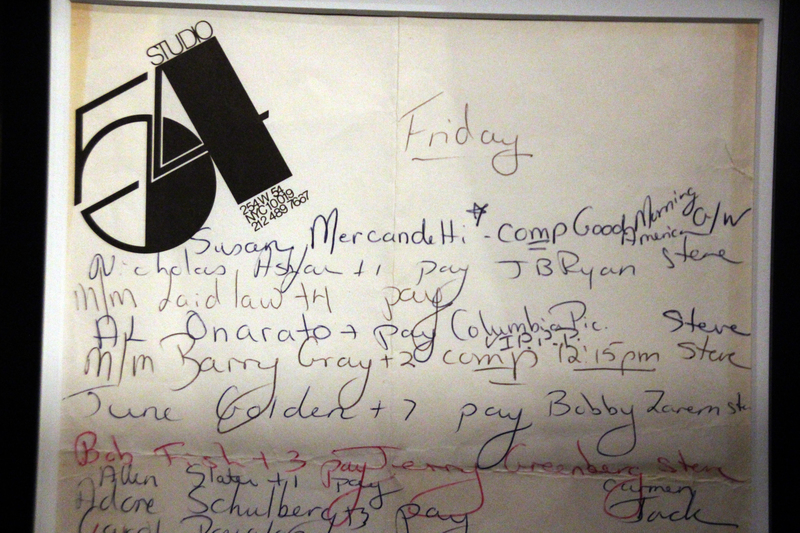 STUDIO
54
254 W. 54
NYC 10019
212 489 7667
Friday
Susan Mercandetti - comp Good Morning America G/W
Nicholas +1 pay JB Ryan Steve
M/M Laidlaw +4 pay
Al Onarato + pay Columbia Pic. Steve
V.I.P.
M/M Barry Gray +2 comp 12:15pm Steve
June Golden +7 pay Bobby Zarem St
Bob +3 pay Jerry Greenberg Steve
Allen Slater +1 pay Carmen
Schulberg +3 pay Jack
Carol